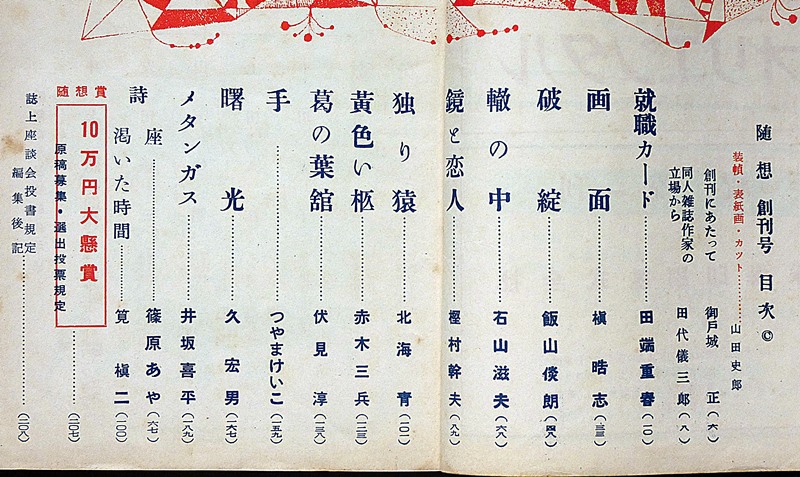 随想 創刊号 目次 ©
装幀・表紙画・カット……山田史郎
創刊にあたって 御戸城 正(六)
同人雑誌作家の立場から 田代儀三郎(八)
就職カード……田端重春(一〇)
画面……槇晧志(三三)
破綻……飯山倓朗(四八)
轍の中……石山滋夫(六八)
鏡と恋人……樫村幹夫(八九)
独り猿……北海青(一〇一)
黄色い柩……赤木三兵(一二三)
葛の葉舘……伏見淳(一三八)
手……つやまけいこ(一五九)
曙光……久宏男(一六七)
メタンガス……井坂喜平(一八九)
詩 座……篠原あや(六七)
渇いた時間……筧槇二(一〇〇)
随想賞
10万円大懸賞
原稿募集・選出投票規定……(二〇七)
誌上座談会投書規定
編集後記……(二〇八)